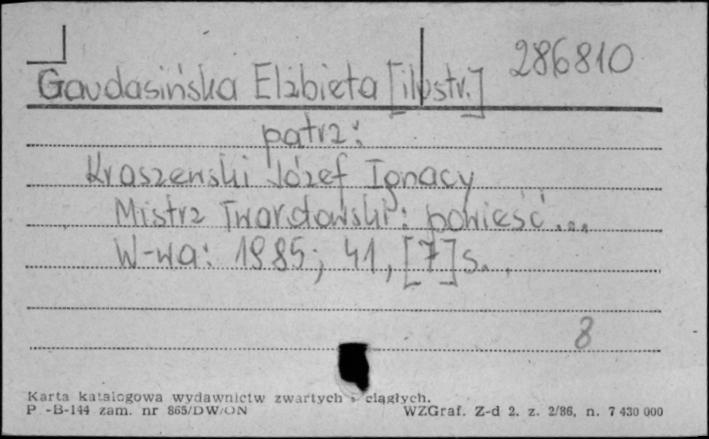 286810
Gaudasińska Elżbieta [ilustr.]
patrz:
Kraszewski Józef Ignacy
Mistrz Twardowski: powieść...
W-wa: 1985; 41, [7] s.
8
Karta katalogowa wydawnictw zwartych i ciągłych.
P -B-144 zam. nr 865/DW/ON WZGraf. Z-d 2. z. 2/86, n. 7 430 000